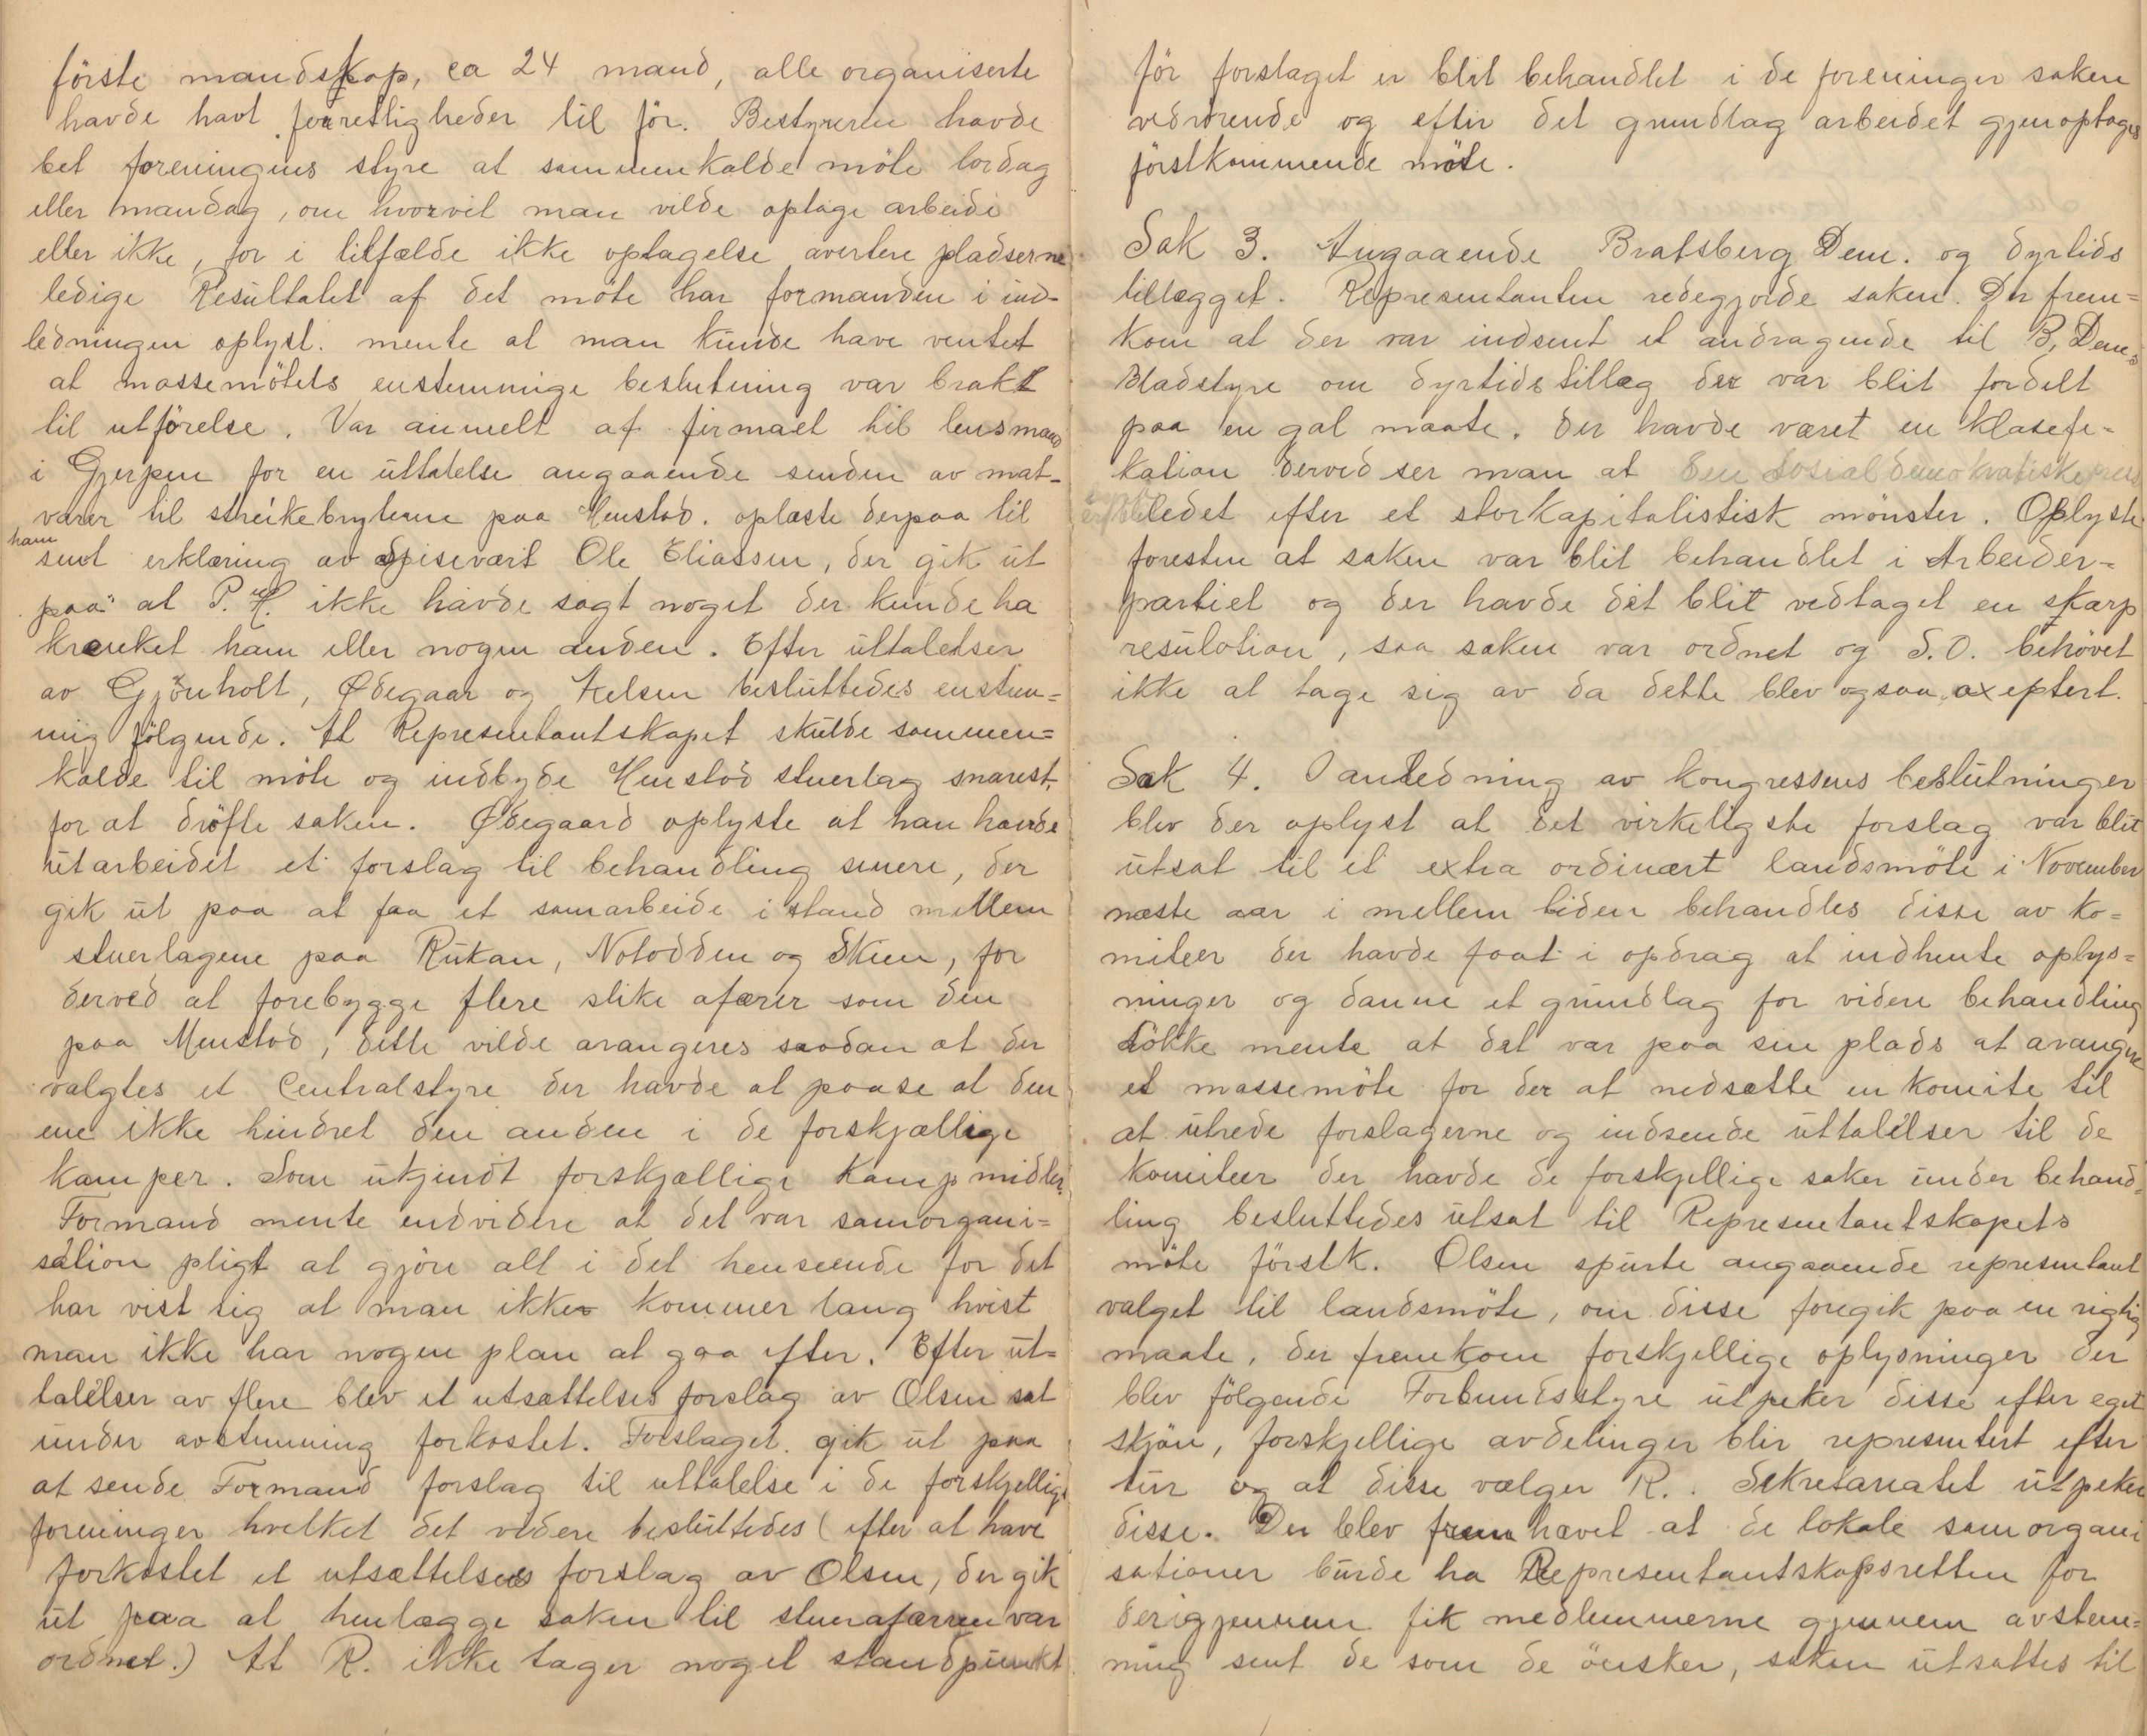 förste mandskap, ca 24 mand, alle organiserte
havde havt forretligheder til för. Bestyreren havde
bet foreningens styre at sammenkalde möte lordag
eller mandag, om hvorvit man vilde optage arbeide
eller ikke, for i tilfælde ikke optagelse avertere pladserne
ledige Resultatet af det möte har formanden i ind-
ledningen oplyst. mente at man kunde have ventet
at massemötets enstemmige beslutning var brakt
til utförelse. Var anmelt af firmaet til lensmand
i Gjerpen for en uttalelse angaaende senden av mat-
varer til streikebryterne paa Menstad. oplæste derpaa til
ham
sent erklæring av spisevært Ole Eliassen, der gik ut
paa at P. H. ikke havde sagt noget der kunde ha
krænket ham eller nogen anden. Efter uttalelser
av Gjönholt, Ødegaar og Kelsen besluttedes enstem=
mig fölgende. At Representantskapet skulde sammen=
kalde til möte og indbyde Menstad stuerlag snarest,
for at dröfte saken. Ødegaard oplyste at han havde
utarbeidet et forslag til behandling senere, der
gik ut paa at faa et samarbeide i stand mellem
stuerlagene paa Rukan, Notodden og Skien, for
derved at forebygge flere slike afærer som den
paa Menstad, dette vilde arangeres saadan at der
valgtes et Centralstyre der havde at paase at den
ene ikke hindret den anden i de forskjællige
kamper. Som utjendt forskjællige kamp midler.
Formand mente endvidere at det var samorgani=
sation pligt at gjöre alt i det henseende for det
har vist sig at man ikke kommer lang hvist
man ikke har nogen plan at gaa efter. Efter ut=
talelser av flere blev et utsættelses forslag av Olsen sat
under avstemning forkastet. Forslaget. gik ut paa
at sende Formand forslag til uttalelse i de forskjellige
foreninger hvilket det videre besluttedes (efter at have
forkastet et utsættelses forslag av Olsen, der gik
ut paa at henlægge saken til stuerafærren var
ordnet.) At R. ikke tager noget standpunkt
för forslaget er blit behandlet i de foreninger saken
vedrörende og efter det grundlag arbeidet gjenoptages
förstkommende möte.
Sak 3. Angaaende Bratsberg Dem. og dyrtids
tillægget. Representanten redegjorde saken. Der frem=
kom at der var indsent et andragende til B. Dems
Bladstyre om dyrtids tillæg der var blit fordelt
paa en gal maate. der havde været en klasefe=
kation derved ser man at den sosialdemokratiske pres
ledet efter et storkapitalistisk mönster. Oplyste
foresten at saken var blit behandlet i Arbeider=
partiet og der havde det blit vedtaget en skarp
resulotion, saa saken var ordnet og S.O. behövet
ikke at tage sig av da dette blev ogsaa axeptert.
Sak 4. I anledning av kongressens beslutninger
blev der oplyst at det virkeligste forslag var blit
utsat til et extra ordinært landsmöte i November
næste aar i mellem tiden behandles disse av ko=
miteer der havde faat i opdrag at indhente oplys=
ninger og danne et grundlag for videre behandling
Lökke mente at det var paa sin plads at arangere
et massemöte for der at nedsætte en komite til
at utrede forslagerne og indsende uttalelser til de
komiteer der havde de forskjellige saker under behand=
ling besluttedes utsat til Representantskapets
möte förstk. Olsen spurte angaaende representant
valget til landsmöte, om disse foregik paa en rigtig
maate, der fremkom forskjellige oplysninger der
blev fölgende Forbundsstyre utpeker disse efter eget
skjön, forskjellige avdelinger blir representert efter
tur og at disse vælger R. . Sekretariatet utpeker
disse. Der blev fremhævet at de lokale samorgani
sationer burde ha Representantskapsretten for
derigjennem fik medlemmerne gjennem avstem=
ning sent de som de önsker, saken utsattes til